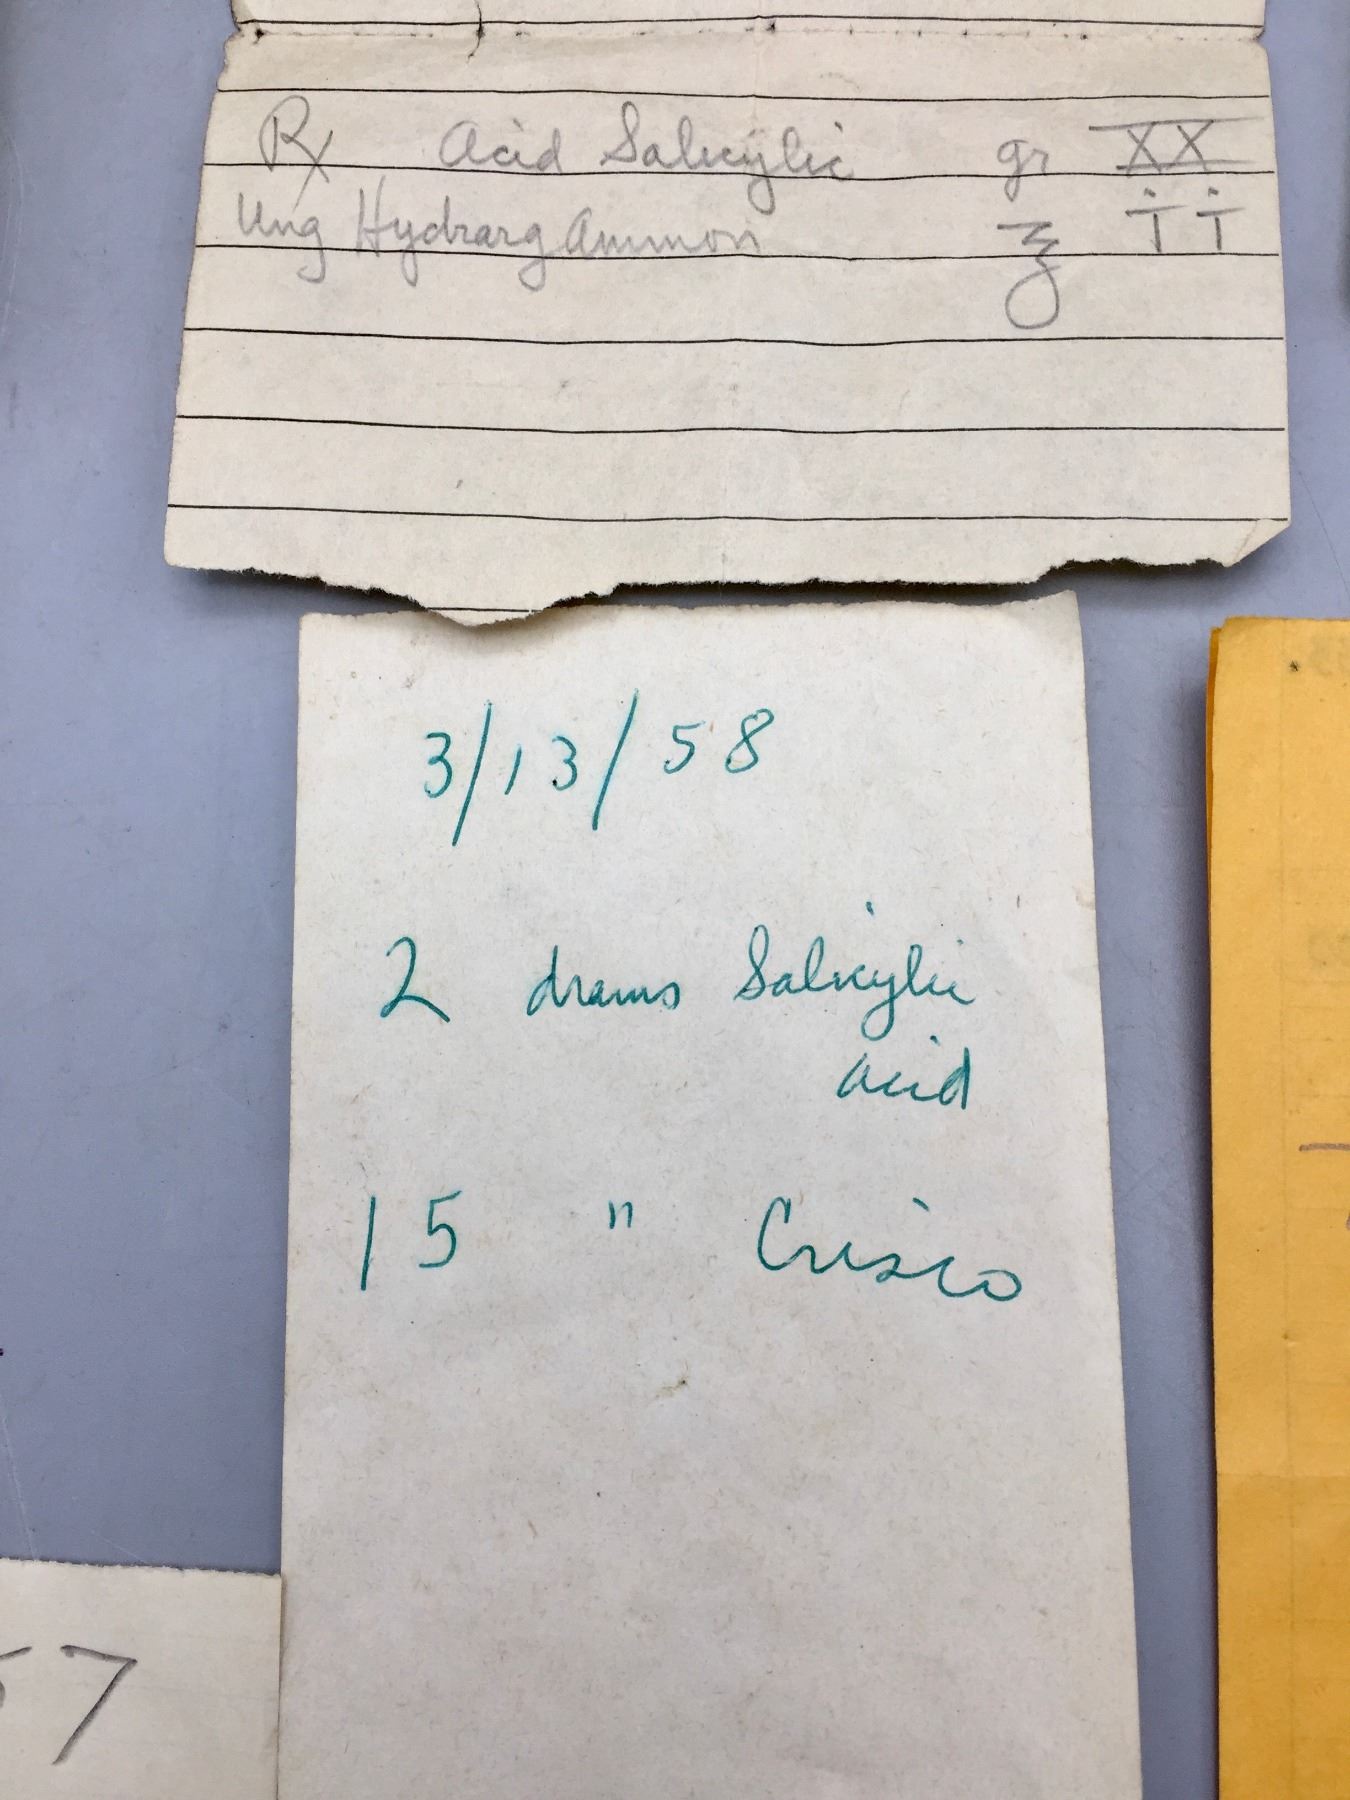 Rx Acid Salicylic gr XX
Ung Hydrarg Ammon ℥ ii
3/13/58
2 drams Salicylic
acid
15 " Crisco
57